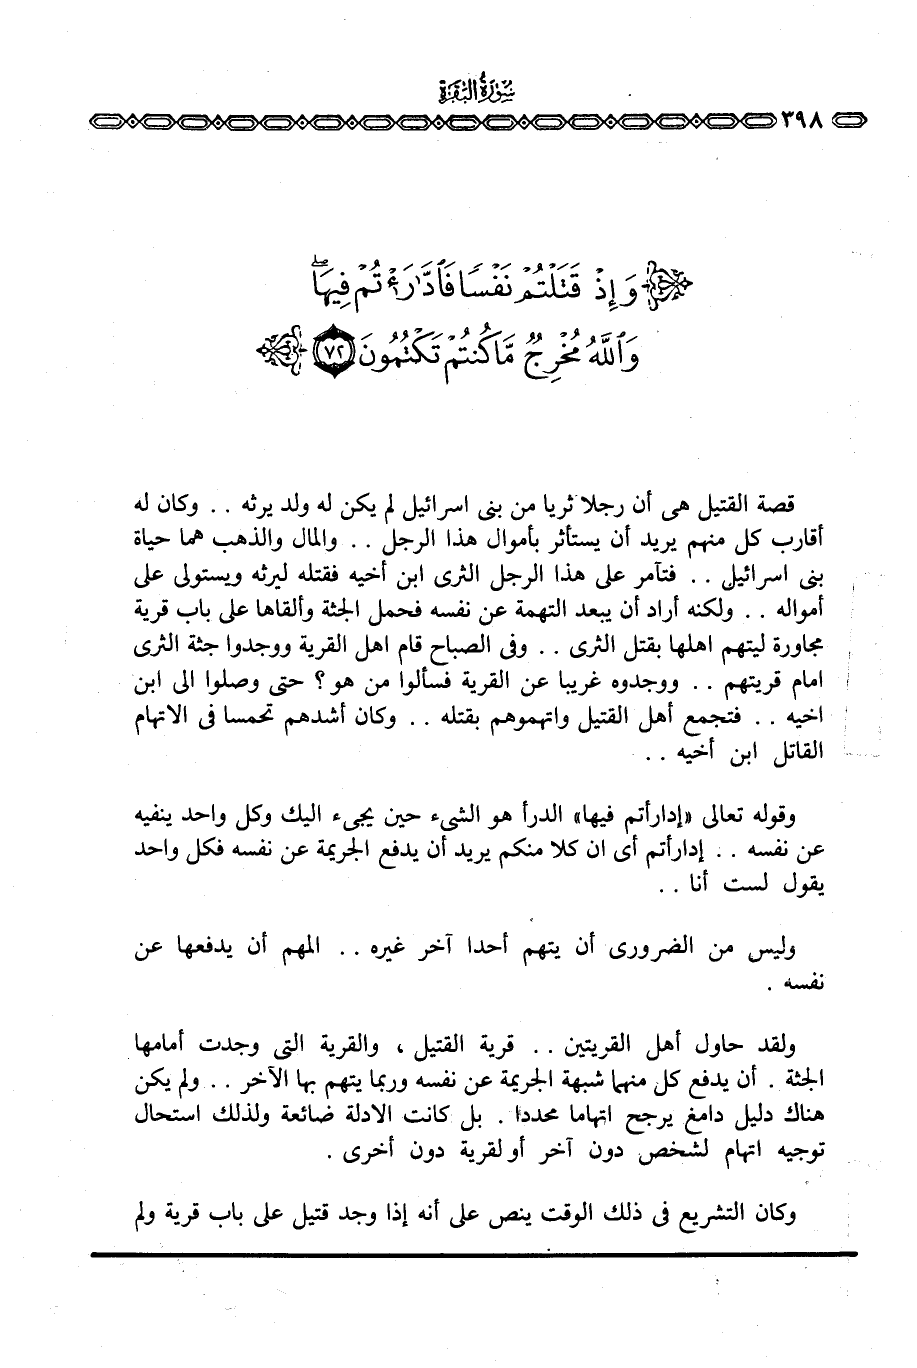 سُورَةُ البَقَرَةِ
٣٩٨
وَإِذْ قَتَلْتُمْ نَفْسًا فَادَّارَأْتُمْ فِيهَا
وَاللَّهُ مُخْرِجٌ مَّا كُنتُمْ تَكْتُمُونَ ٧٢
قصة القتيل هى أن رجلا ثريا من بنى اسرائيل لم يكن له ولد يرثه . . وكان له
أقارب كل منهم يريد أن يستأثر بأموال هذا الرجل . . والمال والذهب هما حياة
بنى اسرائيل . . فتآمر على هذا الرجل الثرى ابن أخيه فقتله ليرثه ويستولى على
أمواله . . ولكنه أراد أن يبعد التهمة عن نفسه فحمل الجثة وألقاها على باب قرية
مجاورة ليتهم اهلها بقتل الثرى . . وفى الصباح قام اهل القرية ووجدوا جثة الثرى
امام قريتهم . . ووجدوه غريبا عن القرية فسألوا من هو ؟ حتى وصلوا الى ابن
اخيه . . فتجمع أهل القتيل واتهموهم بقتله . . وكان أشدهم تحمسا فى الاتهام
القاتل ابن أخيه . .
وقوله تعالى «إدارأتم فيها» الدرأ هو الشىء حين يجىء اليك وكل واحد ينفيه
عن نفسه . . إدارأتم أى ان كلا منكم يريد أن يدفع الجريمة عن نفسه فكل واحد
يقول لست أنا . .
وليس من الضرورى أن يتهم أحدا آخر غيره . . المهم أن يدفعها عن
نفسه .
ولقد حاول أهل القريتين . . قرية القتيل ، والقرية التى وجدت أمامها
الجثة . أن يدفع كل منهما شبهة الجريمة عن نفسه وربما يتهم بها الآخر . . ولم يكن
هناك دليل دامغ يرجح اتهاما محددا . بل كانت الادلة ضائعة ولذلك استحال
توجيه اتهام لشخص دون آخر أو لقرية دون أخرى .
وكان التشريع فى ذلك الوقت ينص على أنه إذا وجد قتيل على باب قرية ولم